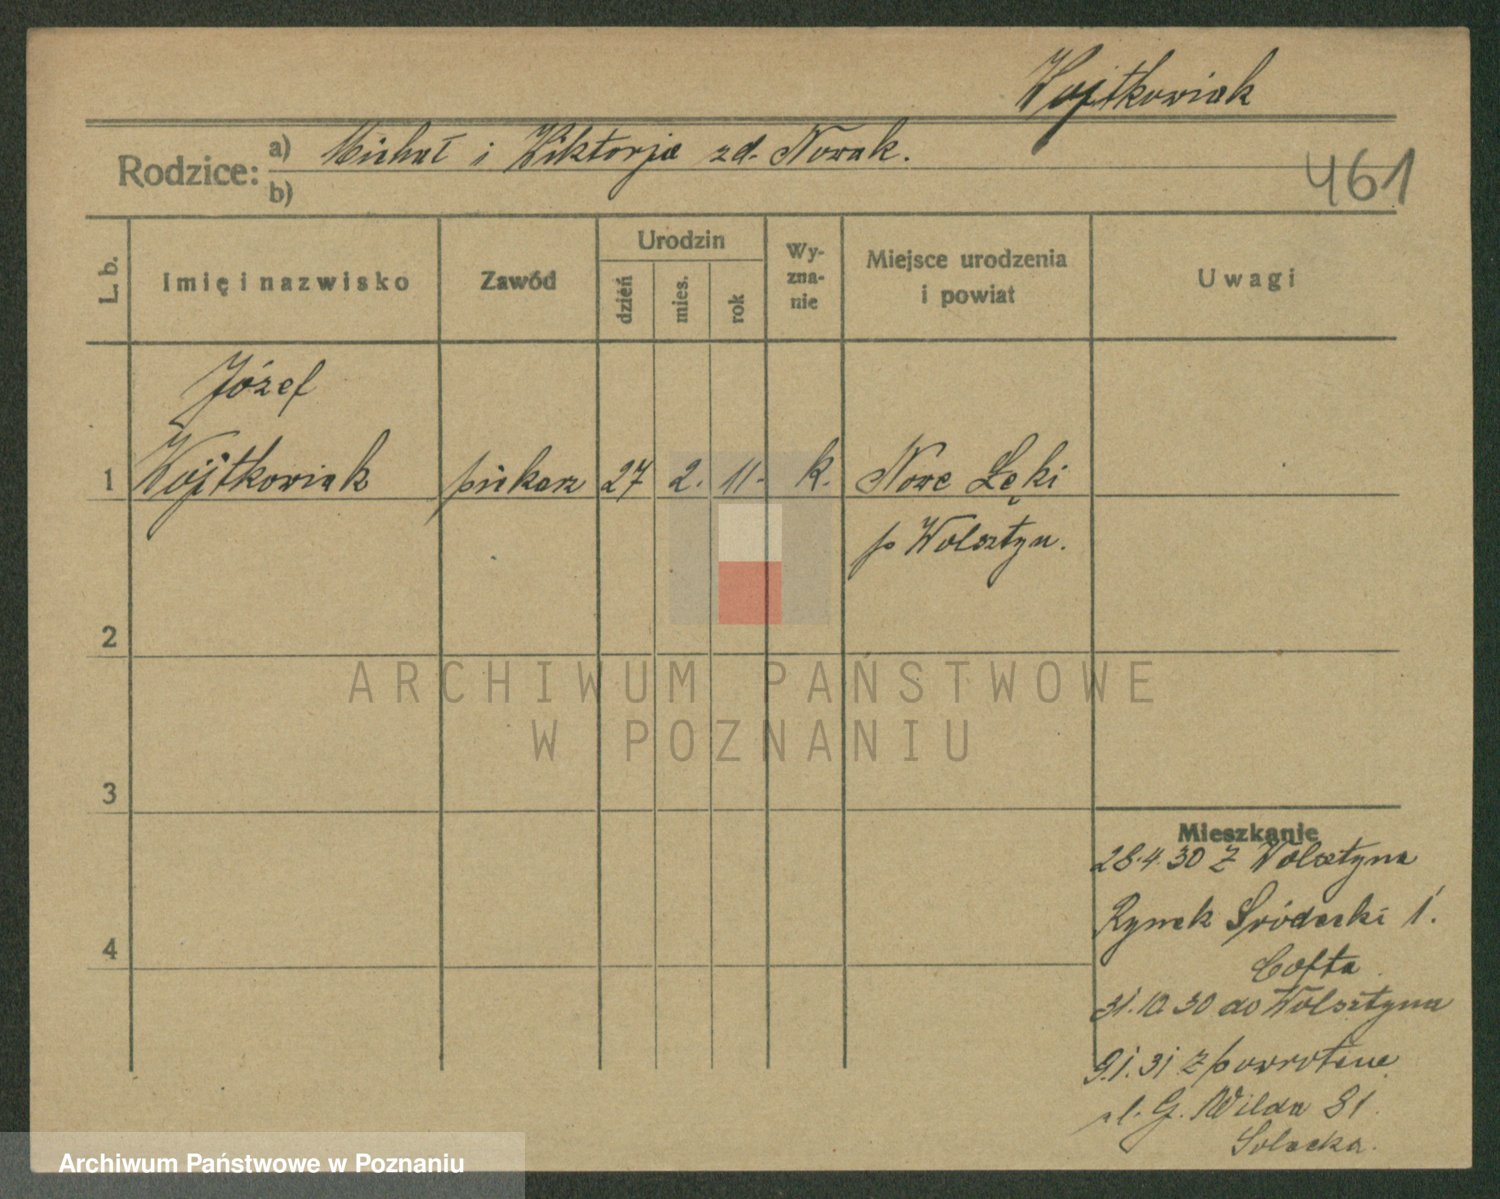 Wojtkowiak
Rodzice: a) Michał i Wiktorja zd. Nowak.
b)
461
L. b.
Imię i nazwisko
Zawód
Urodzin
dzień
mies.
rok
Wy-
zna-
nie
Miejsce urodzenia
i powiat
Uwagi
Józef
1 Wojtkowiak piekarz 27 2. 11. k. Nowe Łęki
p Wolsztyn.
2
ARCHIWUM PAŃSTWOWE
W POZNANIU
3
Mieszkanie
28.4.30 z Wolsztyna
Rynek Śródecki 1.
Cofta
4
31.10.30 do Wolsztyna
9.1.31 z powrotem
G. Wilda 81.
Solecka.
Archiwum Państwowe w Poznaniu